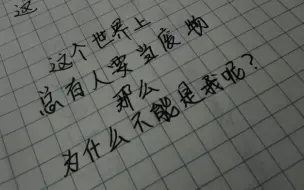 这
这个世界上
总有人要当废物
那么
为什么不能是我呢?